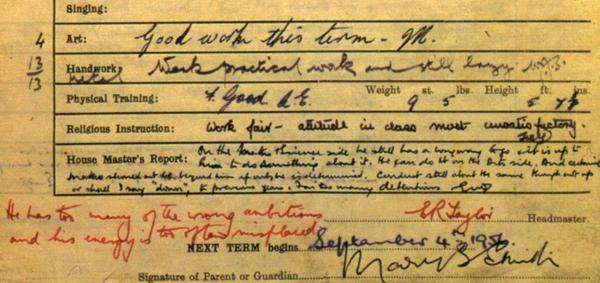 Singing:
4 Art: Good work this term - JM.
13/13 Handwork: Metal Weak practical work and still lazy.
Physical Training: F. Good A.E. Weight 9 st. 5 lbs. Height 5 ins.
Religious Instruction: Work fair - attitude in class most unsatisfactory.
House Master's Report: On the side he still has a long way to go yet it is up to
him to do something about it. He can do it on the Arts side. And
beyond him if only he is determined. Conduct still about the same though not up
or shall I say "down", to previous years. Far too many detentions
He has too many of the wrong ambitions ER Taylor Headmaster.
and his energy is too often misplaced
NEXT TERM begins September 4th
Signature of Parent or Guardian Mary Smith